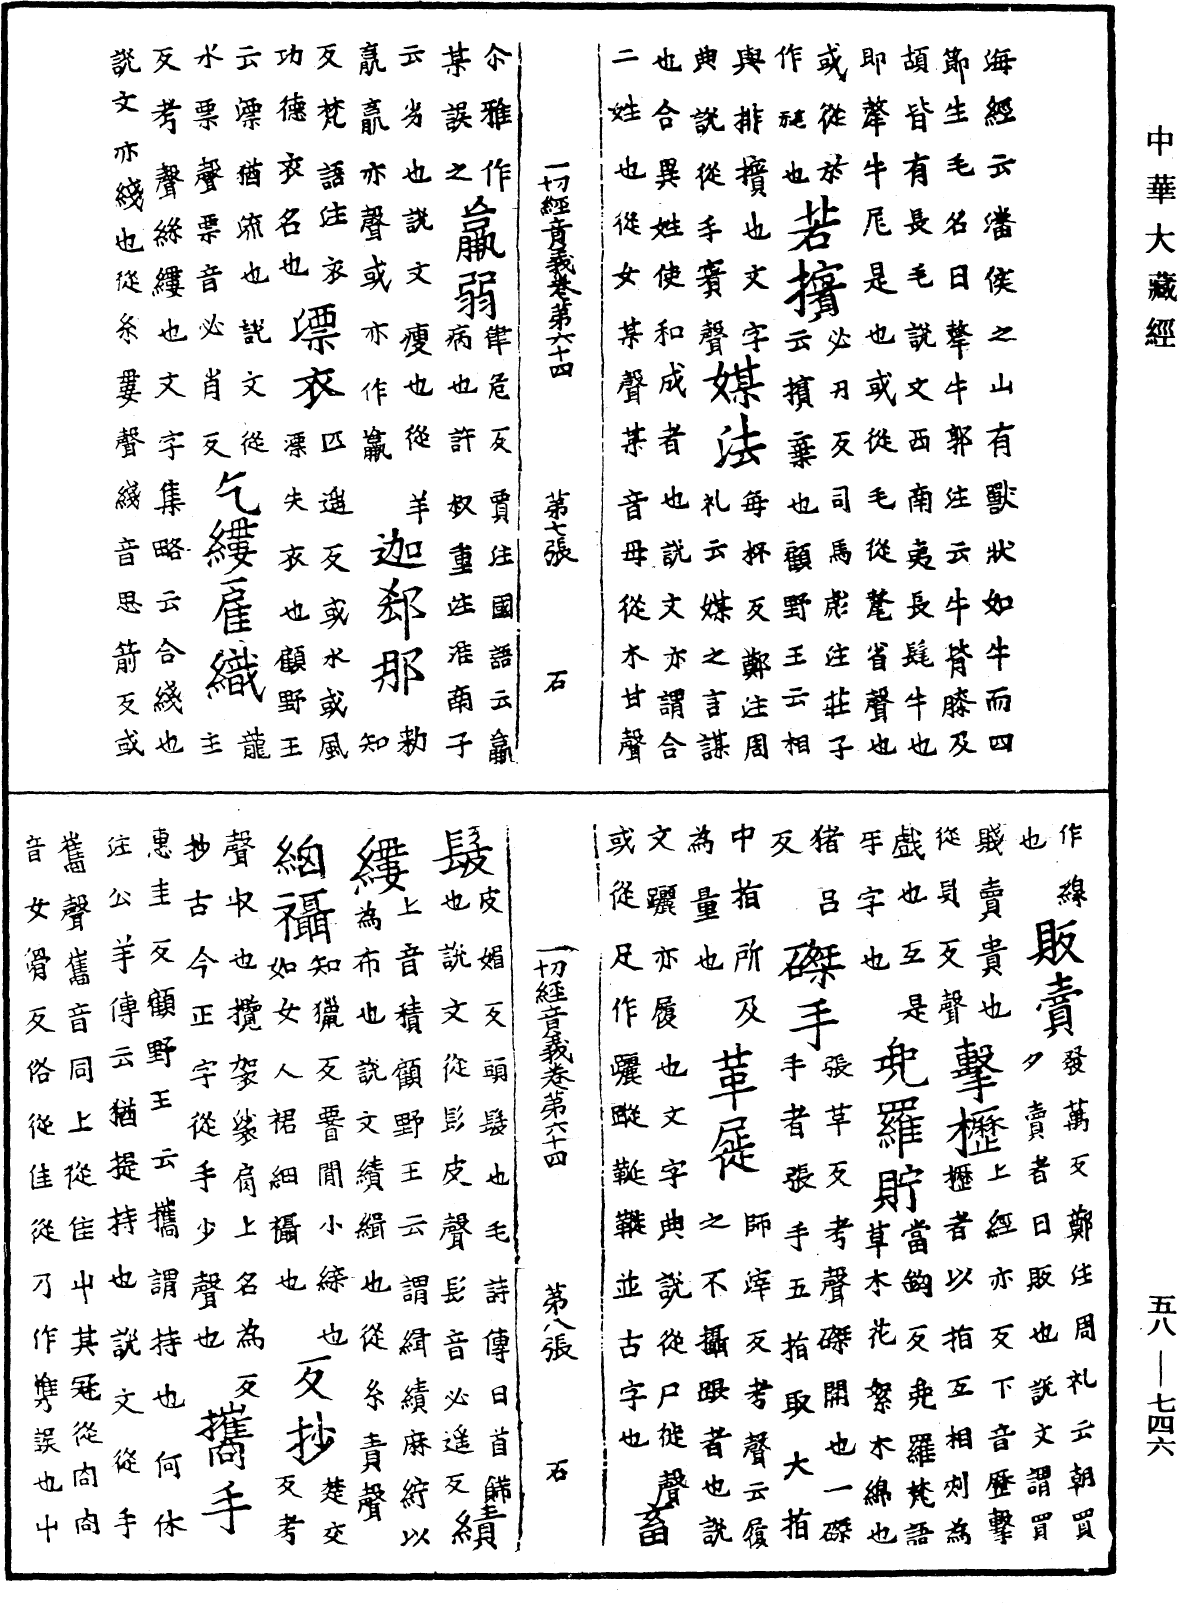 中華大藏經
海經云潘侯之山有獸狀如牛而四
節生毛名曰犛牛郭注云牛背膝及
胡皆有長毛說文西南夷長髦牛也
即犛牛尾是也或從毛從氂省聲也
或從於作 也
若擯
必刃反司馬彪注莊子云擯棄也顧野王云相
與排擯也文字典說從手賓聲
媒法
每杯反鄭注周礼云媒之言謀
也合異姓使和成者也說文亦謂合
二姓也從女某聲某音母從木甘聲
一切經音義卷第六十四 第七張 石
尒雅作某誤之
羸弱
律危反賈注國語云羸病也許叔重注淮南子
云劣也說文瘦也從羊 亦聲或亦作羸
迦郄那
勑知
反梵語注衣功德衣名也
漂衣
匹遙反或水或風漂失衣也顧野王
云漂猶流也說文從水票聲票音必肖反
气縷雇織
龍主
反考聲絲縷也文字集略云合綫也
說文亦綫也從糸婁聲綫音思箭反或
作線也
販賣
發萬反鄭注周礼云朝買夕賣者曰販也說文謂買
賤賣貴也從貝反聲
擊櫪
上經亦反下音歷擊櫪者以指互相刺為
戲也互是 字也
兜羅貯
當鈎反兜羅梵語草木花絮木綿也
猪呂反
磔手
張革反考聲磔開也一磔手者張手五指取大拇
中指所及為量也
革屣
師滓反考聲云履之不攝跟者也說
文躧亦履也文字典說從尸徙聲
或從足作躧蹝 並古字也
畜
一切經音義卷第六十四 第八張 石
髲
皮媚反頭髲也毛詩傳曰首飾
也說文從髟皮聲髟音必遙反
績縷
上音積顧野王云謂緝績麻紵以
為布也說文績緝也從糸責聲
襵
知獵反 間小 也如女人裙細襵也
反抄
楚交反考
聲収也攬袈裟肩上名為反
抄古今正字從手少聲也
攜手
惠圭反顧野王云攜謂持也何休
注公羊傳云猶提持也說文從手
巂聲巂音同上從隹屮其冠從冏冏
音女滑反俗從隹從乃作 誤也屮
五八—七四六